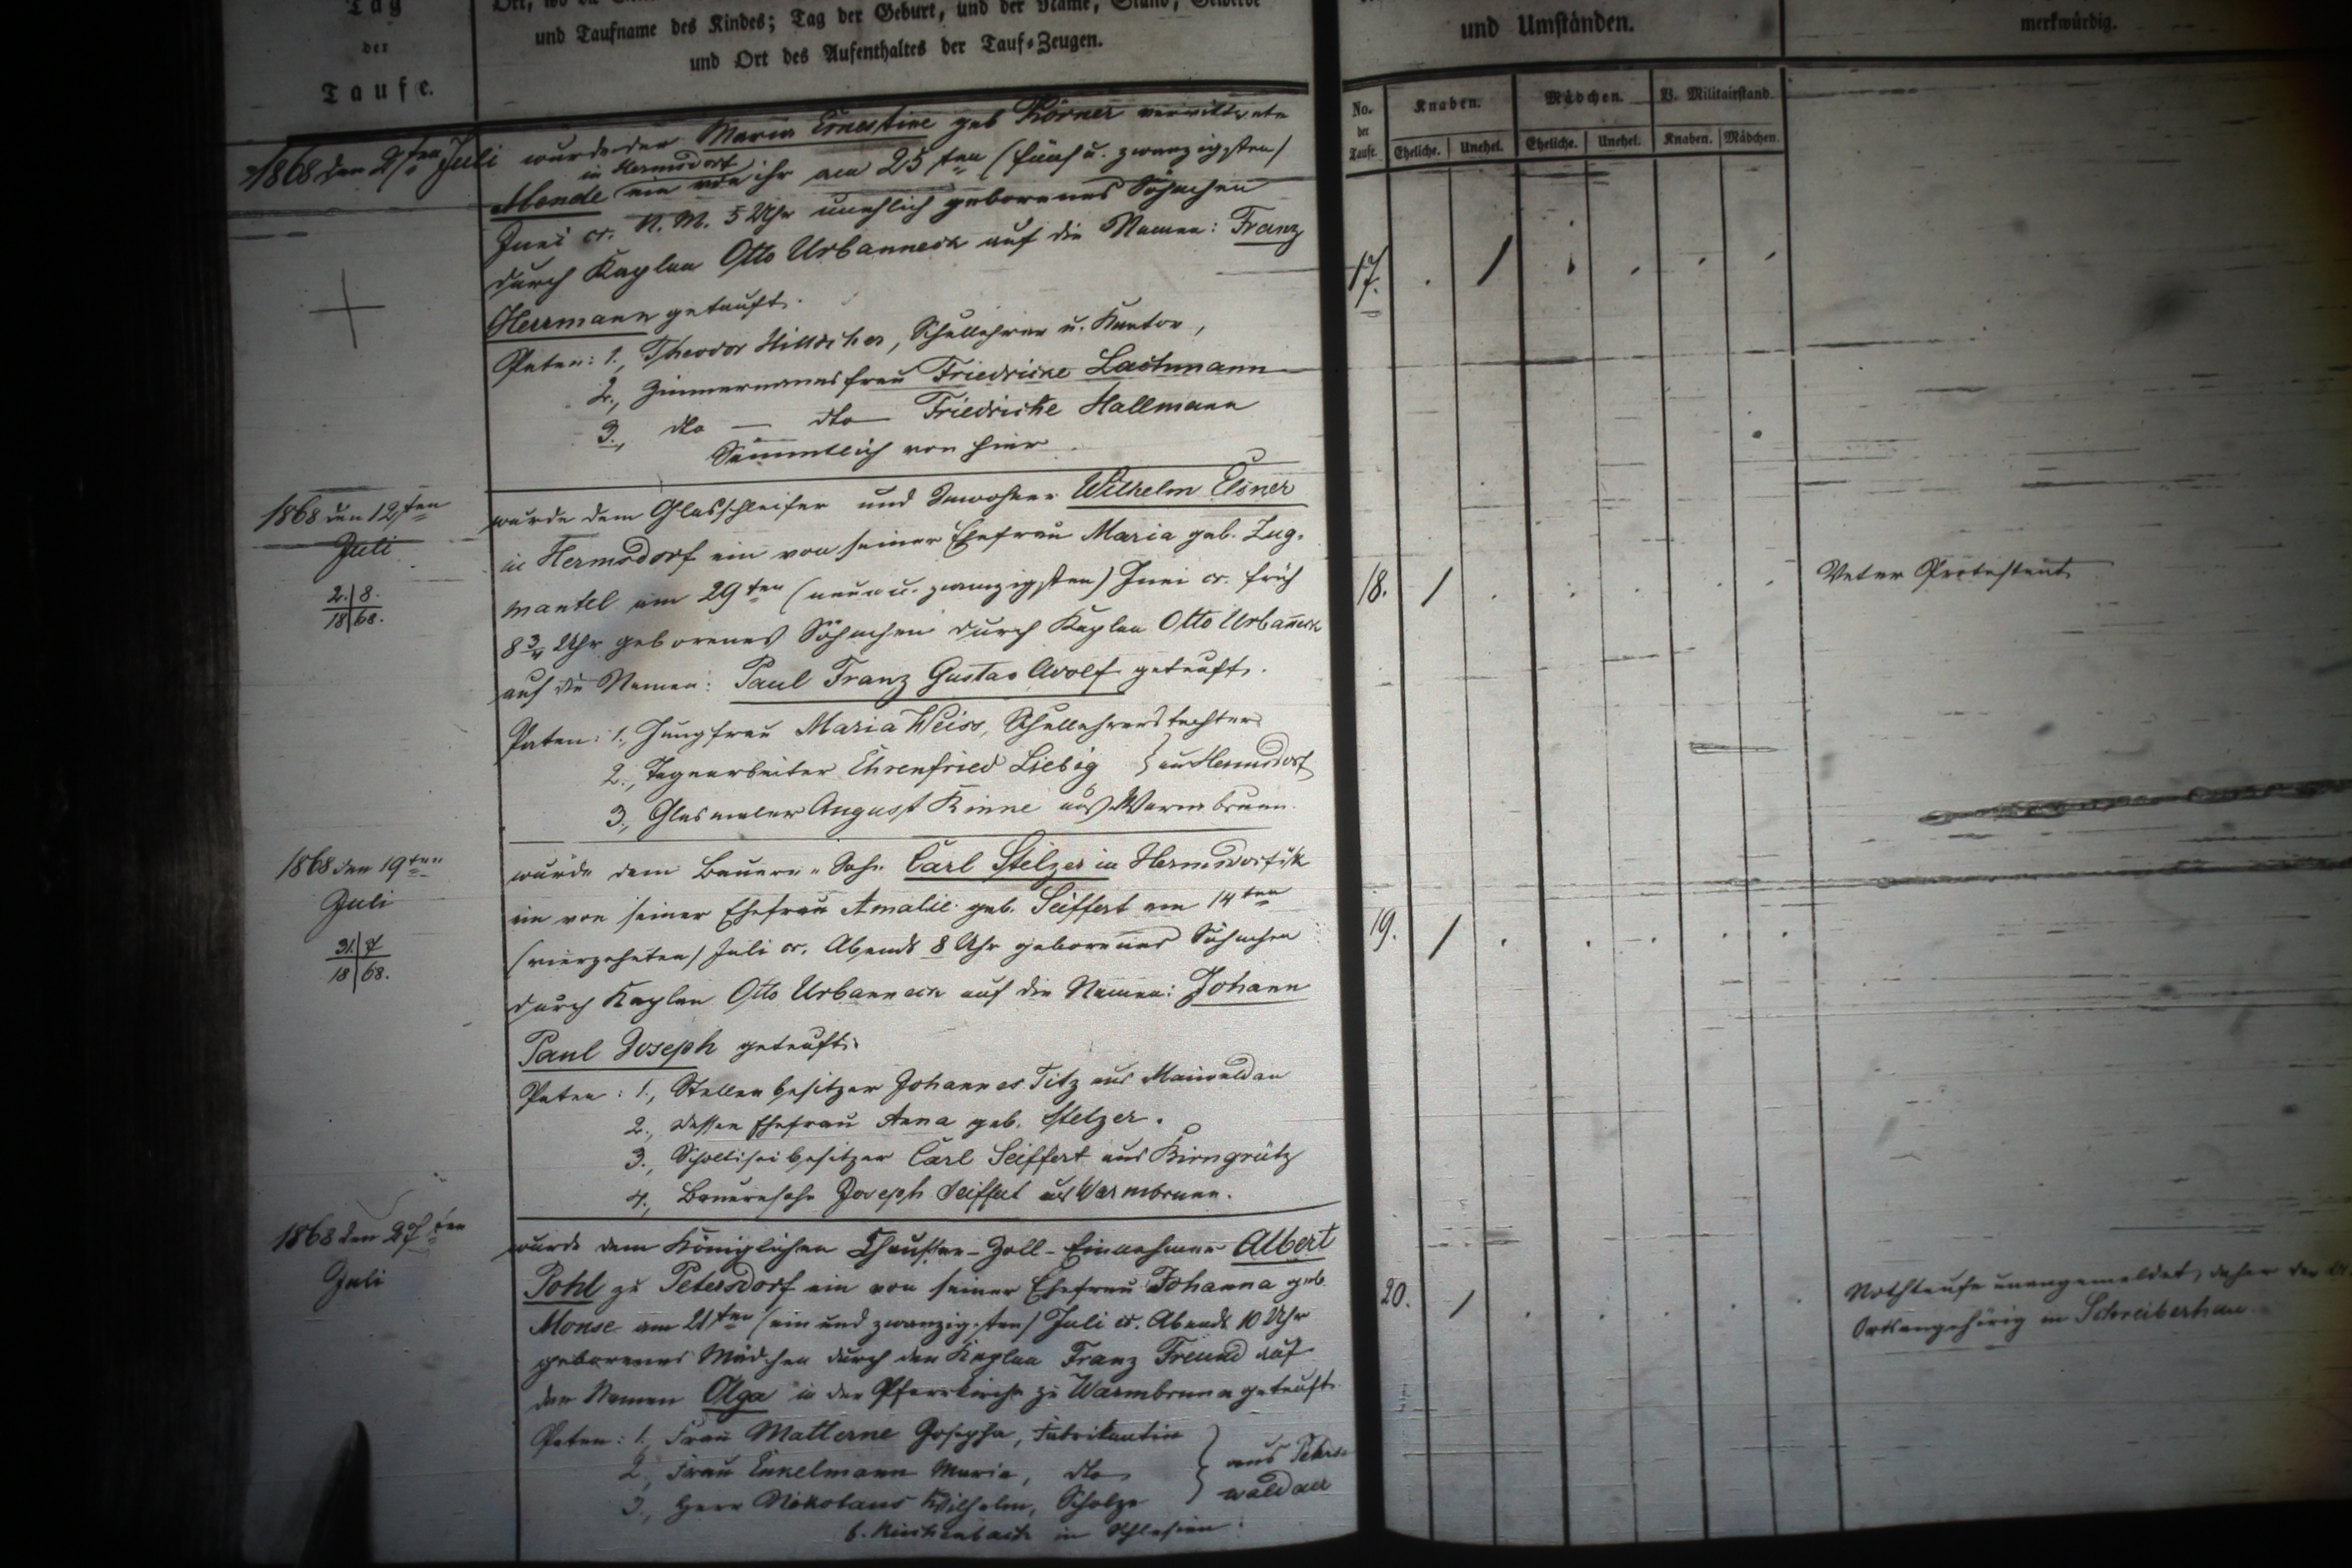 Tag
der
Taufe.
und Taufname des Kindes; Tag der Geburt, und der Name, Stand, Gewerbe
und Ort des Aufenthaltes der Tauf-Zeugen.
und Umständen.
merkwürdig.
No. der Taufe.
Knaben.
Mädchen.
V. Militairstand.
Eheliche. Unehel. Eheliche. Unehel. Knaben. Mädchen.
1868 den 2ten Juli
wurde der Maria Ernestine geb Körner verwittwete
in Hermsdorf
Mende ein von ihr am 25ten (fünf u. zwanzigsten)
Juni cr. N. M. 5 Uhr unehlich geborenes Söhnchen
durch Kaplan Otto Urbanneck auf die Namen: Franz
Herrmann getauft.
Paten: 1., Theodor, Schullehrer u. Kantor,
2., Zimmermannsfrau Friedricke Lachmann
3., dto — dto — Friedricke Hallmann
Sämmtlich von hier
17.
1868 den 12ten
Juli
2. 8.
18 68.
wurde dem Glasschleifer und Inwohner Wilhelm Elsner
in Hermsdorf ein von seiner Ehefrau Maria geb. Zug-
mantel am 29ten (neun u. zwanzigsten) Juni cr. früh
8 3/4 Uhr geborenes Söhnchen durch Kaplan Otto Urban̄eck
auf die Namen: Paul Franz Gustav Adolf getauft.
Paten: 1., Jungfrau Maria Weiss, Schullehrerstochter
2., Tagearbeiter Ehrenfried Liebig } aus Hermsdorf
3., Glasmaler August Rinne aus Warmbrunn.
18. 1
Vater Protestant
1868 den 19ten
Juli
31. 7
18 68.
wurde dem Bauern-Sohn Carl Stelzer in Hermsdorf
ein von seiner Ehefrau Amalie geb. Seiffert am 14ten
(vierzehnten) Juli cr. Abends 8 Uhr geborenes Söhnchen
durch Kaplan Otto Urbanneck auf die Namen: Johann
Paul Joseph getauft.
Paten: 1., Stellenbesitzer Johannes Titz aus Maiwaldau
2., dessen Ehefrau Anna geb. Stelzer.
3., Scholtiseibesitzer Carl Seiffert aus Birngrütz
4., Bauernsohn Joseph Seiffert aus Warmbrunn.
19. 1
1868 den 27ten
Juli
wurde dem Königlichen Chaussee-Zoll-Einnehmer Albert
Pohl zu Petersdorf ein von seiner Ehefrau Johanna geb.
Monse am 21ten (ein und zwanzigsten) Juli cr. Abends 10 Uhr
geborenes Mädchen durch den Kaplan Franz Freund auf
den Namen Olga in der Pfarrkirche zu Warmbrunn getauft.
Paten: 1., Frau Matterne Josepha, Fabrikantin
2., Frau Enkelmann Maria, dto
3., Herr Nikolaus Wilhelm, Scholze
aus
waldau
in Schlesien.
20. 1
Nothtaufe unangemeldet, daher
Ortsangehörig in Schreiberhau